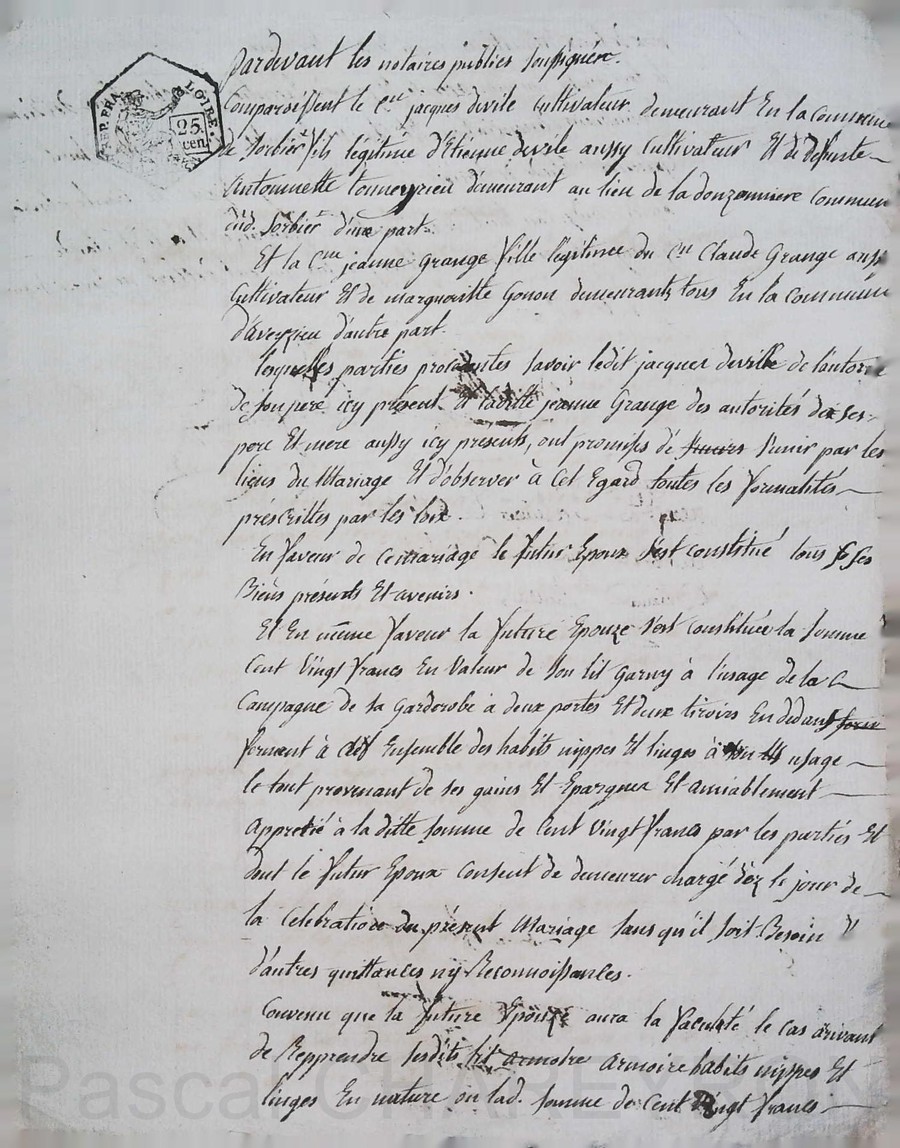 REP. FRA. LOIRE.
25 cen.
Pardevant les notaires publics soussignés.
Comparoissent le Cen jacques devile Cultivateur demeurant En la Commune
de Sorbier fils légitime d'Etienne devile aussy Cultivateur Et de defunte
Antoinette tonneyrieu demeurant au lieu de la donzonniere Commun
dud. Sorbier d'une part.
Et la Cne jeanne Grange fille légitime du Cn Claude Grange aussy
Cultivateur Et de margueritte Gonon demeurants tous En la Commune
d'aveyzieu d'autre part.
lesquelles parties procedantes savoir ledit jacques deville de l'autorité
de son pere icy présent Et laditte jeanne Grange des autorités de ses
pere Et mere aussy icy presents, ont promis de s'unir par les
liens du Mariage Et d'observer à Cet Egard toutes les formalités
préscrittes par les loix.
En faveur de Ce mariage le futur Epoux s'est constitué tous ses
Biens présents Et avenirs.
Et En même faveur la future Epouze s'est constituée la somme
Cent Vingt francs En Valeur de son lit garny à l'usage de la
Campagne de sa garderobe à deux portes Et deux tiroirs En dedans
fermant à clef Ensemble des habits nippes Et linges à son usage
le tout provenant de ses gains Et Epargnes Et amiablement
apprecié à la ditte somme de Cent Vingt francs par les parties Et
dont le futur Epoux Consent de demeurer chargé dèz le jour de
la Célébration du présent Mariage sans qu'il soit Besoin
d'autres quittances ny Reconnoissances.
Convenu que la future Epouze aura la faculté le cas arivant
de Repprendre lesdits lit armoire habits nippes Et
linges En nature ou lad. somme de Cent Vingt francs